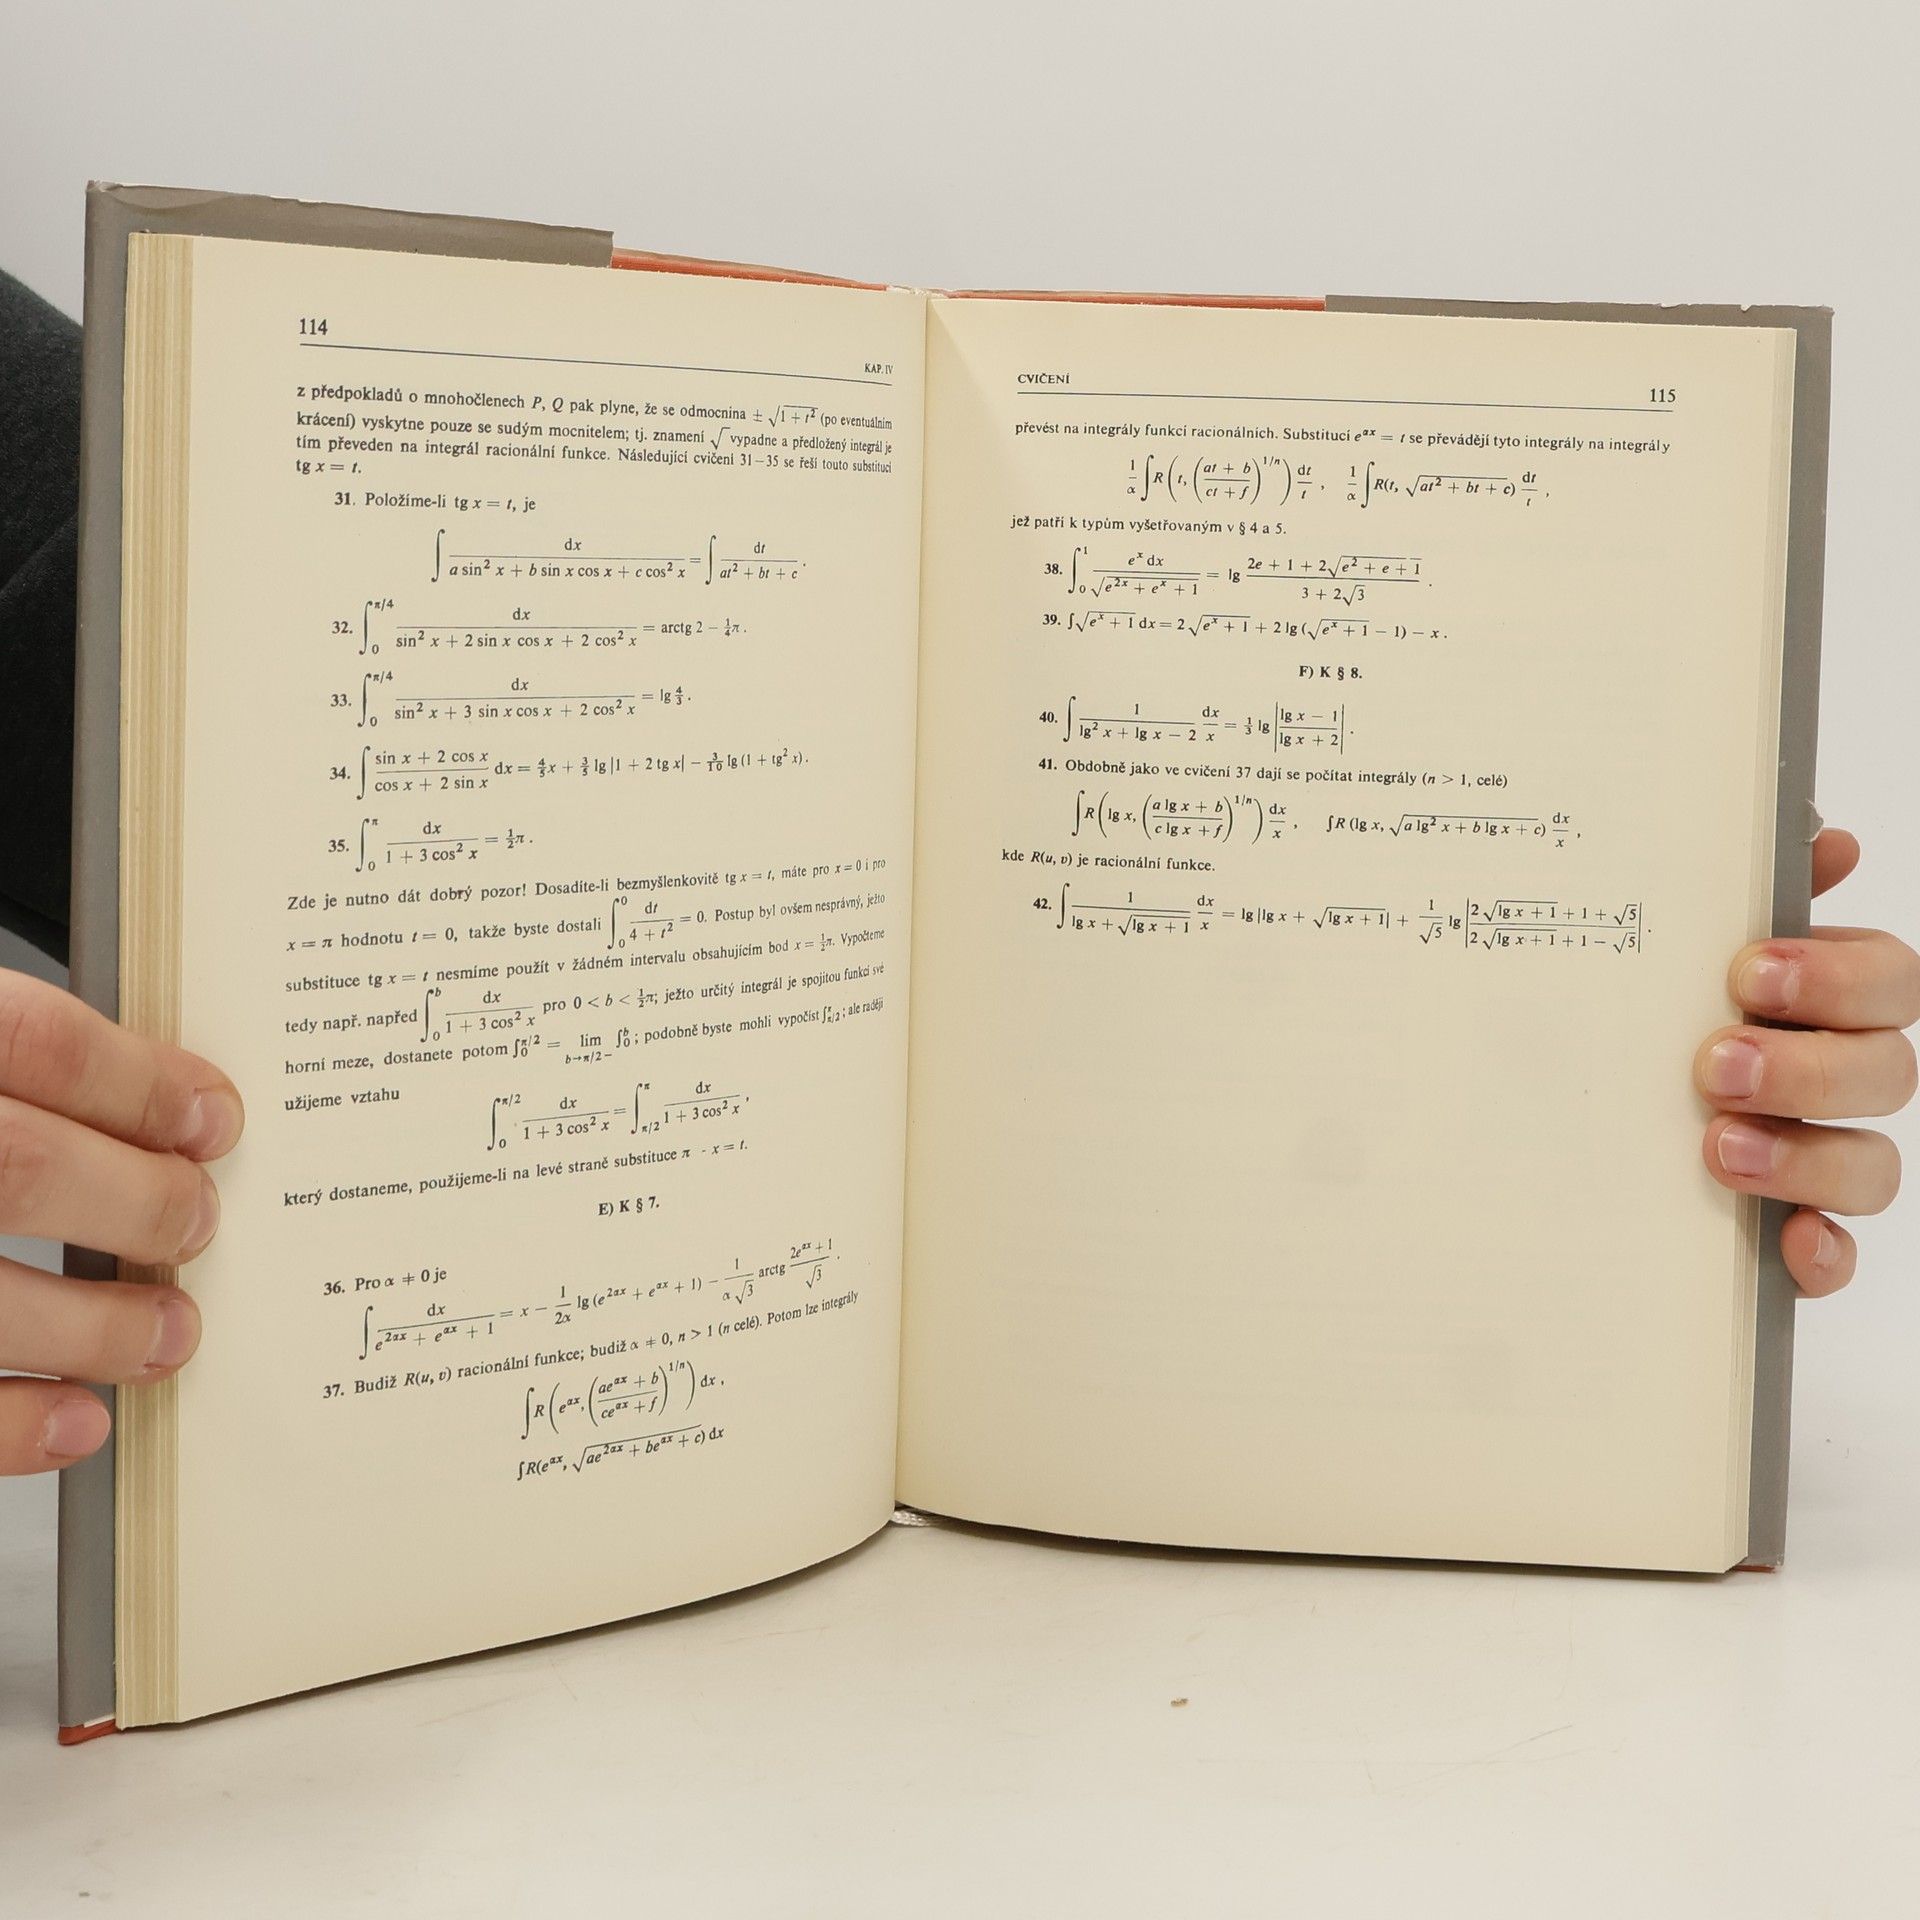 114
KAP. IV
z předpokladů o mnohočlenech P, Q pak plyne, že se odmocnina ± √(1 + t²) (po eventuálním
krácení) vyskytne pouze se sudým mocnitelem; tj. znamení √ vypadne a předložený integrál je
tím převeden na integrál racionální funkce. Následující cvičení 31–35 se řeší touto substitucí
tg x = t.
31. Položíme-li tg x = t, je
∫ dx / (a sin² x + b sin x cos x + c cos² x) = ∫ dt / (at² + bt + c) .
32. ∫₀^{π/4} dx / (sin² x + 2 sin x cos x + 2 cos² x) = arctg 2 − ¼π .
33. ∫₀^{π/4} dx / (sin² x + 3 sin x cos x + 2 cos² x) = lg 4/3 .
34. ∫ (sin x + 2 cos x) / (cos x + 2 sin x) dx = 4/5 x + 3/5 lg |1 + 2 tg x| − 3/10 lg (1 + tg² x) .
35. ∫₀^π dx / (1 + 3 cos² x) = ½π .
Zde je nutno dát dobrý pozor! Dosadíte-li bezmyšlenkovitě tg x = t, máte pro x = 0 i pro
x = π hodnotu t = 0, takže byste dostali ∫₀⁰ dt / (4 + t²) = 0. Postup byl ovšem nesprávný, ježto
substituce tg x = t nesmíme použít v žádném intervalu obsahujícím bod x = ½π. Vypočteme
tedy např. napřed ∫₀^b dx / (1 + 3 cos² x) pro 0 < b < ½π; ježto určitý integrál je spojitou funkcí své
horní meze, dostanete potom ∫₀^{π/2} = lim_{b→π/2−} ∫₀^b ; podobně byste mohli vypočíst ∫_{π/2}^π ; ale raději
užijeme vztahu
∫₀^{π/2} dx / (1 + 3 cos² x) = ∫_{π/2}^π dx / (1 + 3 cos² x) ,
který dostaneme, použijeme-li na levé straně substituce π - x = t.
E) K § 7.
36. Pro α ≠ 0 je
∫ dx / (e^{2αx} + e^{αx} + 1) = x − 1/(2α) lg (e^{2αx} + e^{αx} + 1) − 1/(α √3) arctg (2e^{αx} + 1)/√3 .
37. Budiž R(u, v) racionální funkce; budiž α ≠ 0, n > 1 (n celé). Potom lze integrály
∫ R (e^{αx}, ((ae^{αx} + b)/(ce^{αx} + f))^{1/n}) dx ,
∫ R(e^{αx}, √(ae^{2αx} + be^{αx} + c)) dx
CVIČENÍ
115
převést na integrály funkcí racionálních. Substitucí e^{αx} = t se převádějí tyto integrály na integrály
1/α ∫ R (t, ((at + b)/(ct + f))^{1/n}) dt/t , 1/α ∫ R(t, √(at² + bt + c)) dt/t ,
jež patří k typům vyšetřovaným v § 4 a 5.
38. ∫₀¹ e^x dx / √(e^{2x} + e^x + 1) = lg (2e + 1 + 2√(e² + e + 1)) / (3 + 2√3) .
39. ∫√(e^x + 1) dx = 2 √(e^x + 1) + 2 lg (√(e^x + 1) − 1) − x .
F) K § 8.
40. ∫ 1 / (lg² x + lg x − 2) dx/x = ⅓ lg |(lg x − 1)/(lg x + 2)| .
41. Obdobně jako ve cvičení 37 dají se počítat integrály (n > 1, celé)
∫ R (lg x, ((a lg x + b)/(c lg x + f))^{1/n}) dx/x , ∫R (lg x, √(a lg² x + b lg x + c)) dx/x ,
kde R(u, v) je racionální funkce.
42. ∫ 1 / (lg x + √(lg x + 1)) dx/x = lg |lg x + √(lg x + 1)| + 1/√5 lg |(2 √(lg x + 1) + 1 + √5)/(2 √(lg x + 1) + 1 − √5)| .